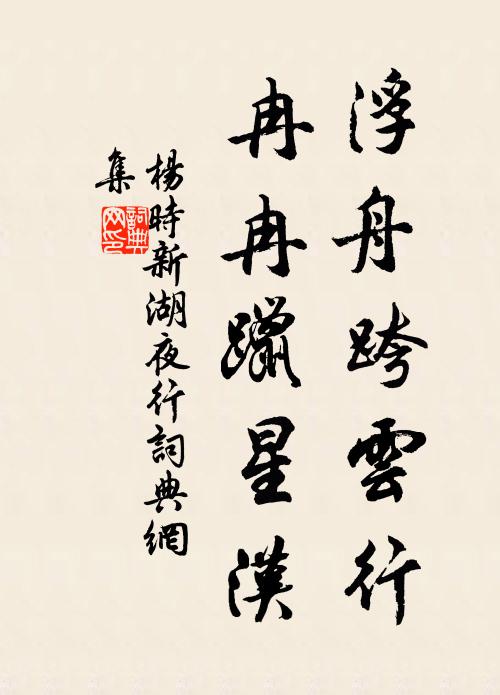 浮舟跨雲行
冉冉躐星漢
楊時新湖夜行詞典網
集
詞典網印